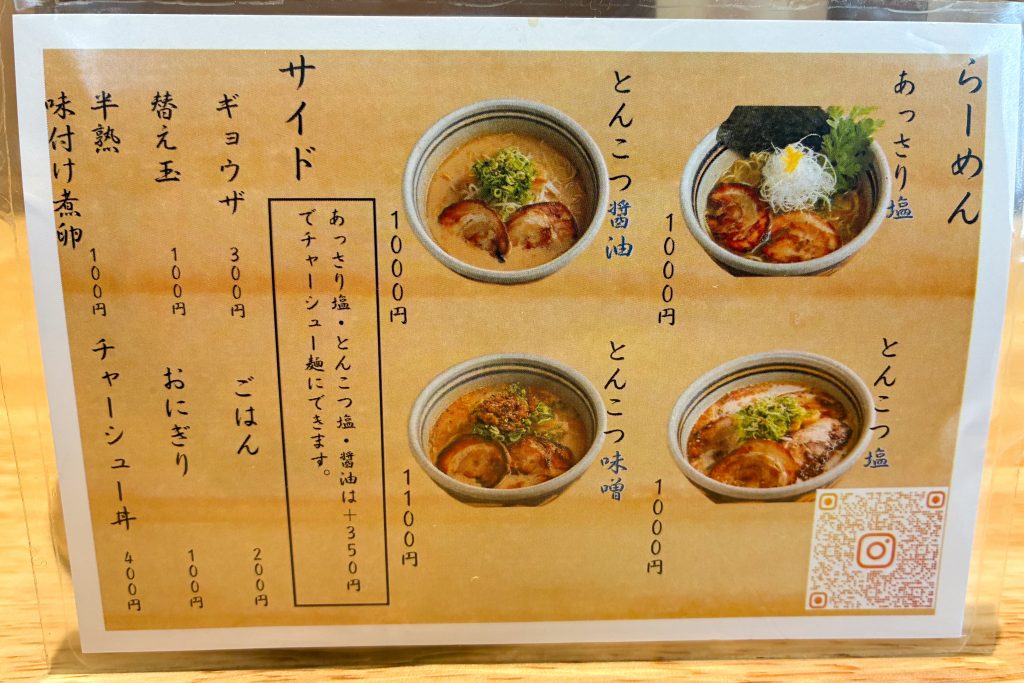 らーめん
あっさり塩
1000円
とんこつ塩
1000円
とんこつ醤油
1000円
とんこつ味噌
1100円
あっさり塩・とんこつ塩・醤油は＋350円
でチャーシュー麺にできます。
サイド
ギョウザ
300円
替え玉
100円
半熟
味付け煮卵
100円
ごはん
200円
おにぎり
100円
チャーシュー丼
400円